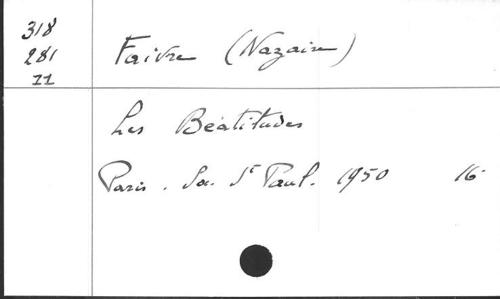 318
281
II
Faivre (Nazaire)
Les Béatitudes
Paris. Soc. St Paul. 1950 16